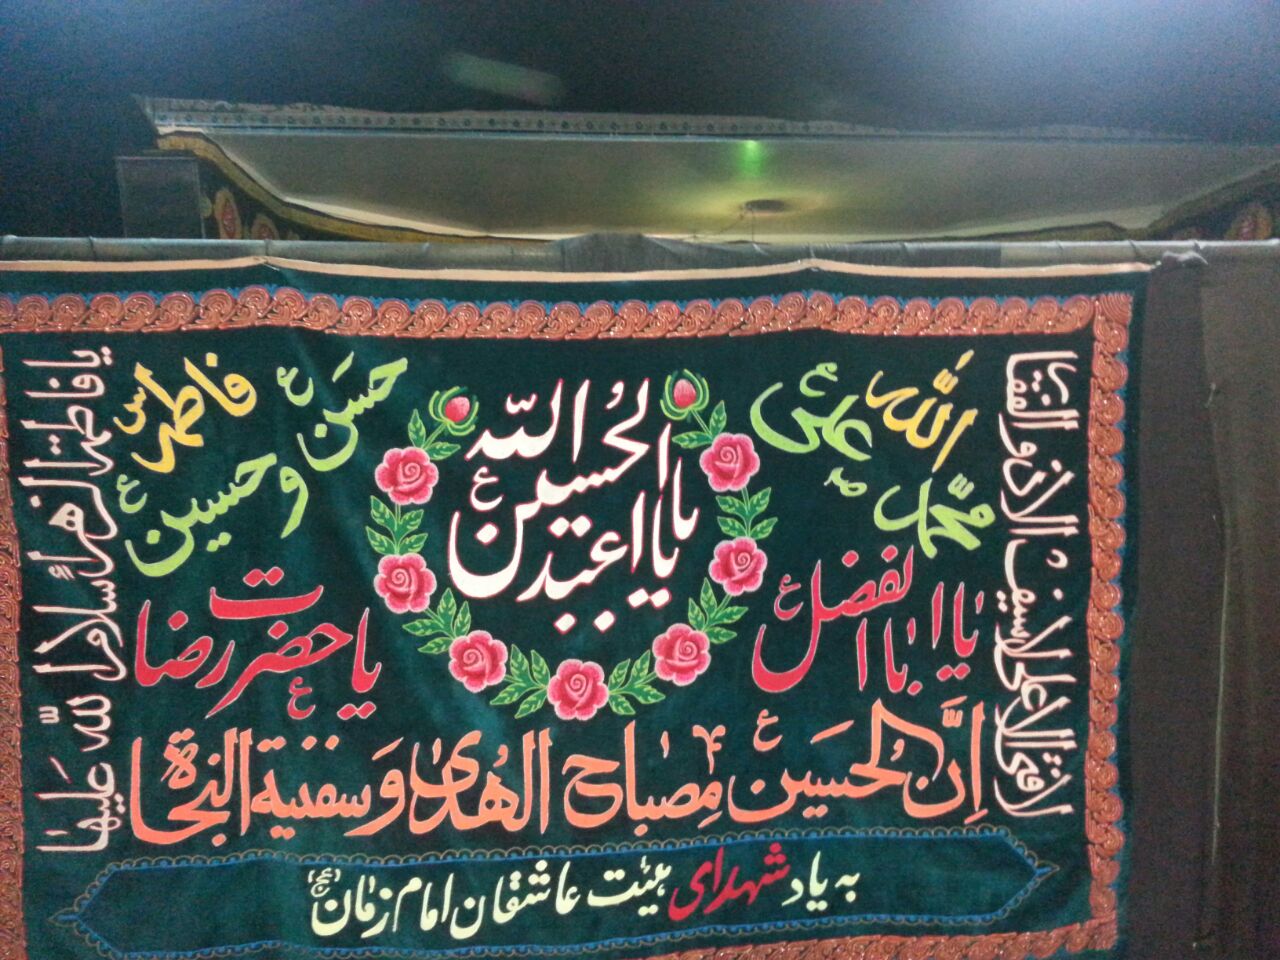 الله
محمد ص
علی ع
فاطمه س
حسن ع
و حسین ع
یا ابا عبد الله
الحسین ع
یا ابا الفضل ع
یا حضرت رضا ع
اِنَّ الحُسَین ع مِصباح الهُدیٰ وَ سفنیة النجاة
لا فتی الا علی لا سیف الا ذوالفقار
یا فاطمة الزهرا سلام الله علیها
به یاد شهدای هیئت عاشقان امام زمان (عج)